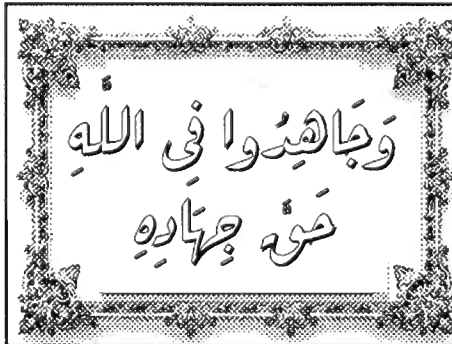 وَجَاهِدُوا فِي اللَّهِ
حَقَّ جِهَادِهِ